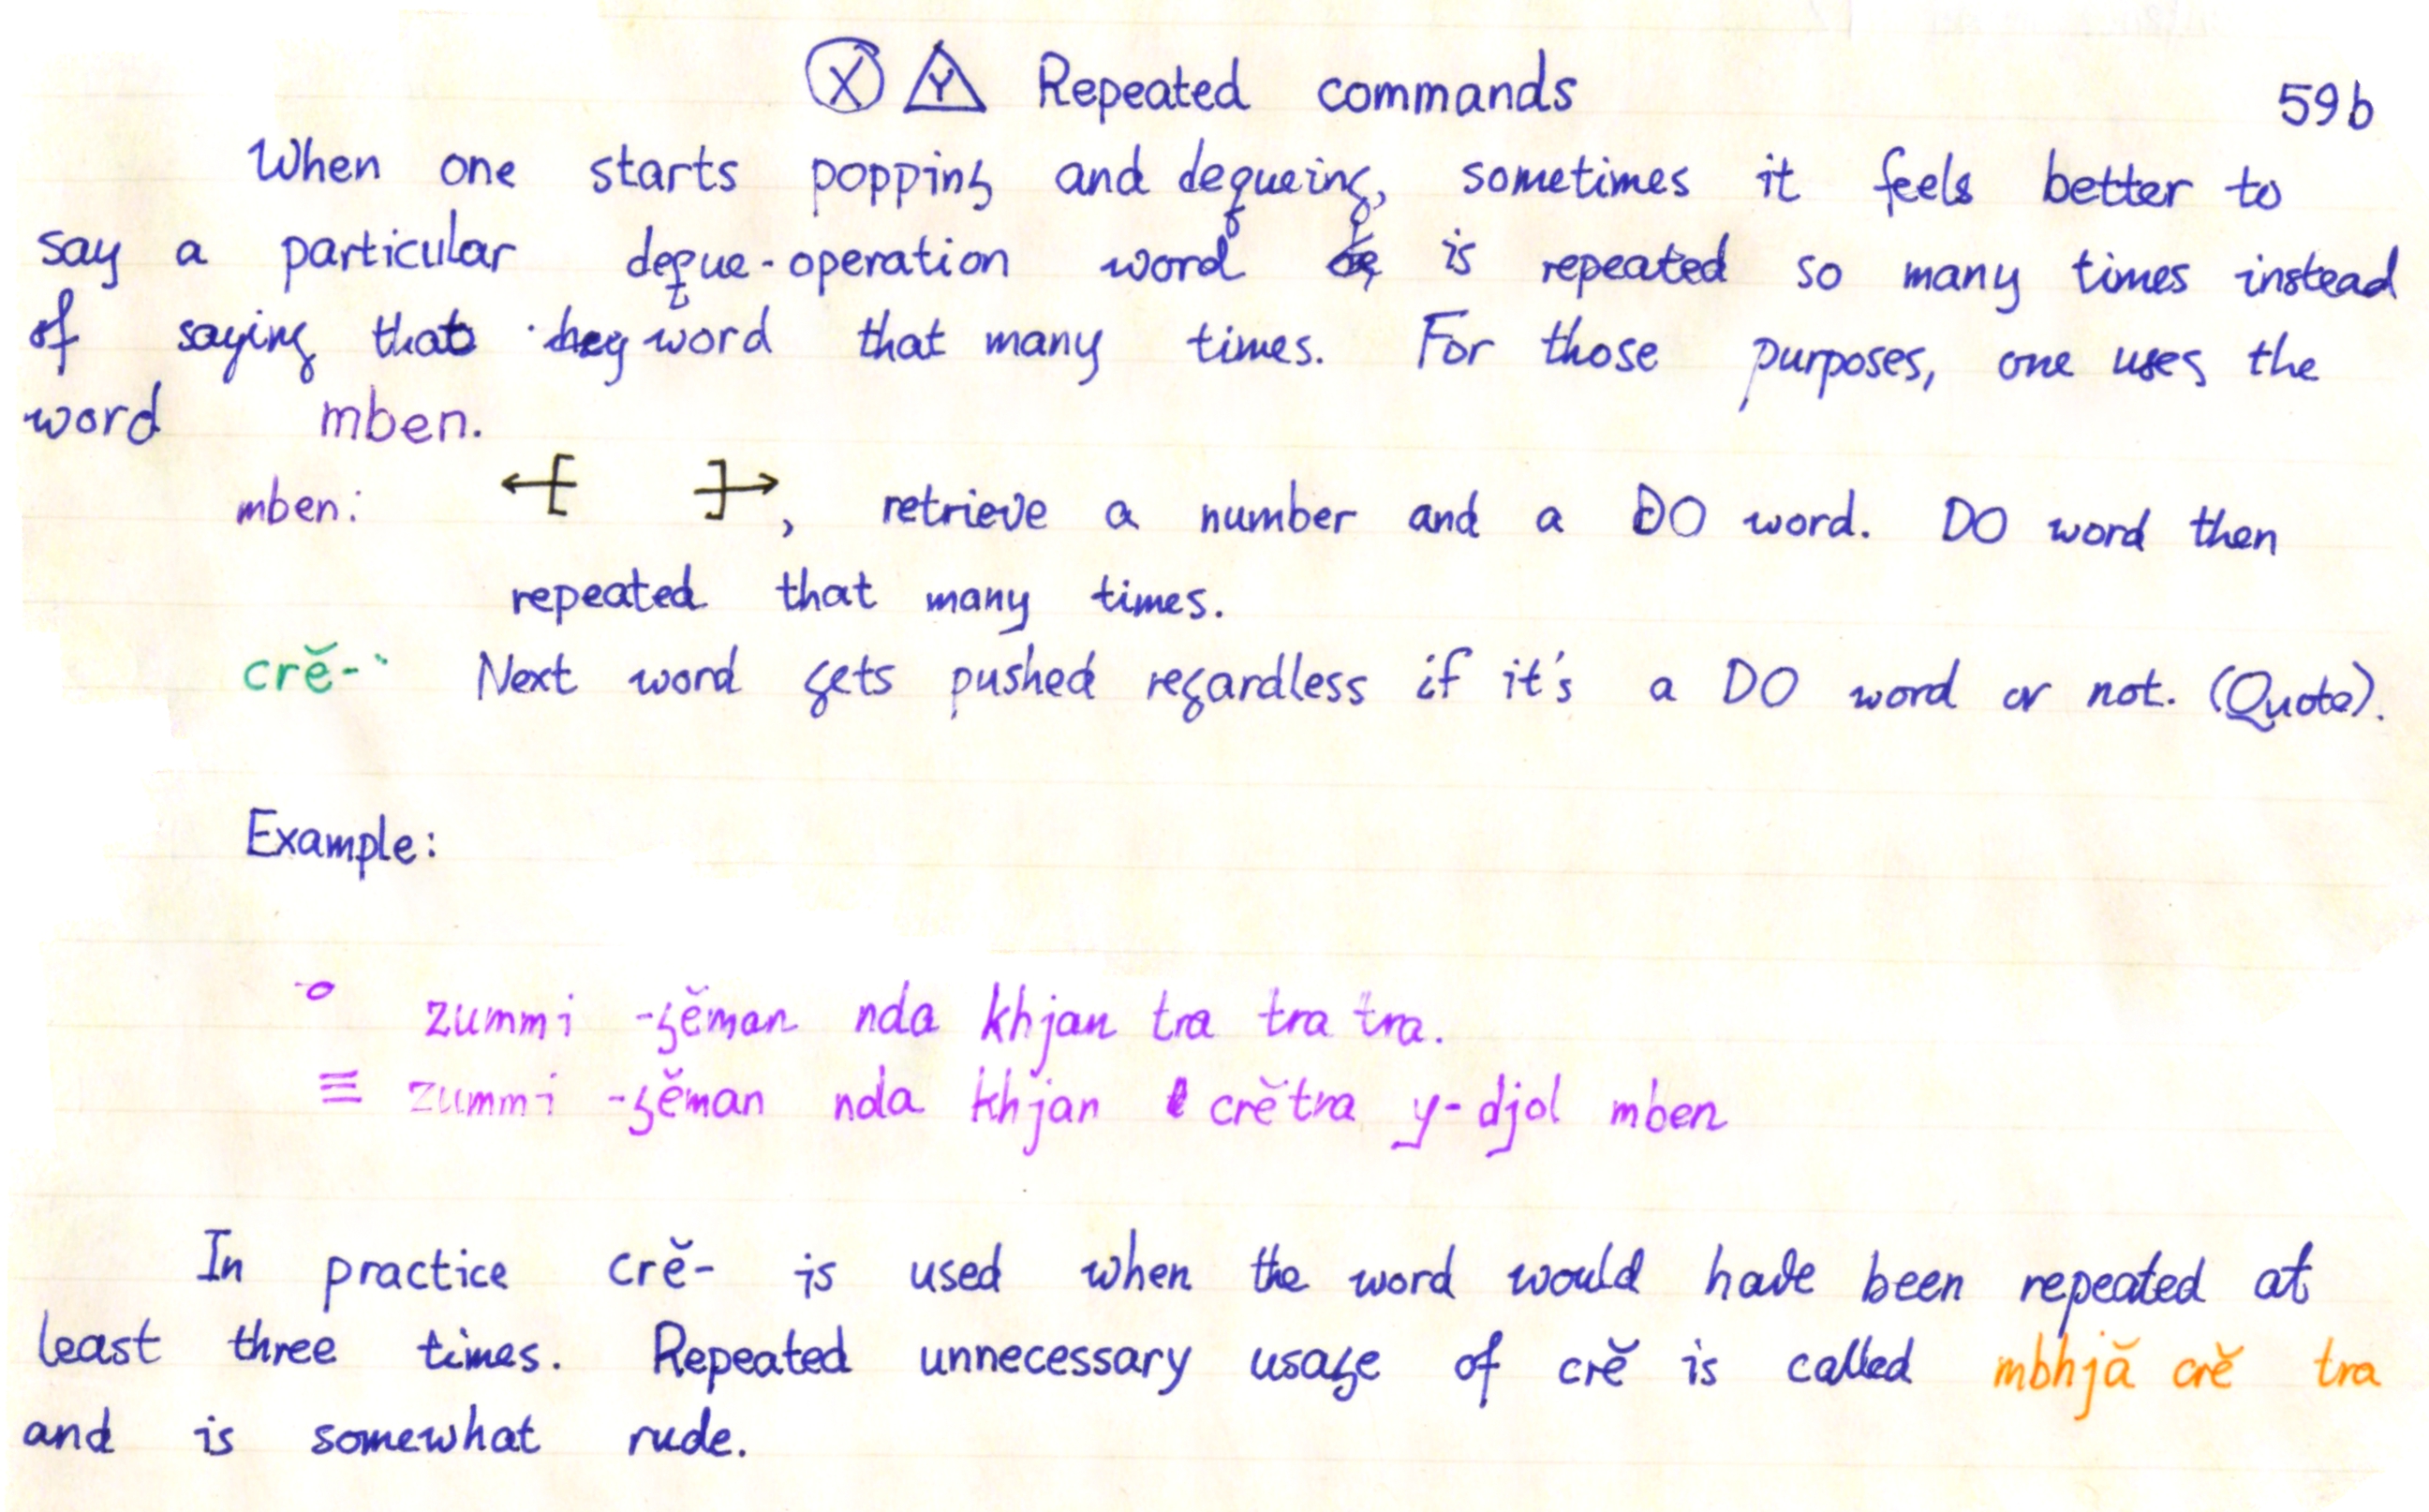 X Y Repeated commands 59b
When one starts popping and dequeing, sometimes it feels better to
say a particular deque-operation word is repeated so many times instead
of saying that word that many times. For those purposes, one uses the
word mben.
mben: , retrieve a number and a DO word. DO word then
repeated that many times.
crĕ- Next word gets pushed regardless if it's a DO word or not. (Quote).
Example:
zummi -gĕman nda khjan tra tra tra.
≡ zummi -gĕman nda khjan crĕtra y-djol mben
In practice crĕ- is used when the word would have been repeated at
least three times. Repeated unnecessary usage of crĕ is called mbhjă crĕ tra
and is somewhat rude.